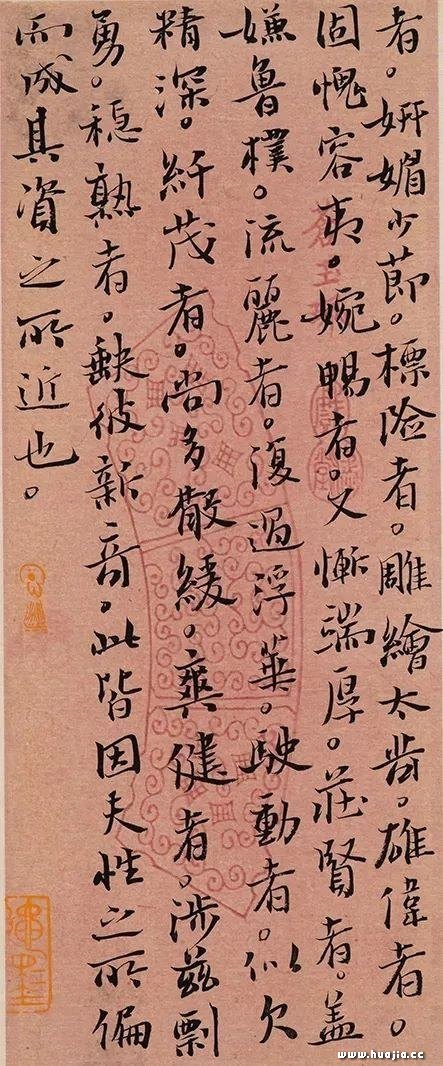 者。妍媚少節。標險者。雕繪太苛。雄偉者。
固愧容夷。婉暢者。又慚端厚。莊賢者。盖
嫌魯樸。流麗者。復過浮華。駛動者。似欠
精深。纖茂者。尚多散緩。爽健者。涉茲剽
勇。穩熟者。缺彼新奇。此皆因夫性之所偏
而成其資之所近也。
www.huajia.cc